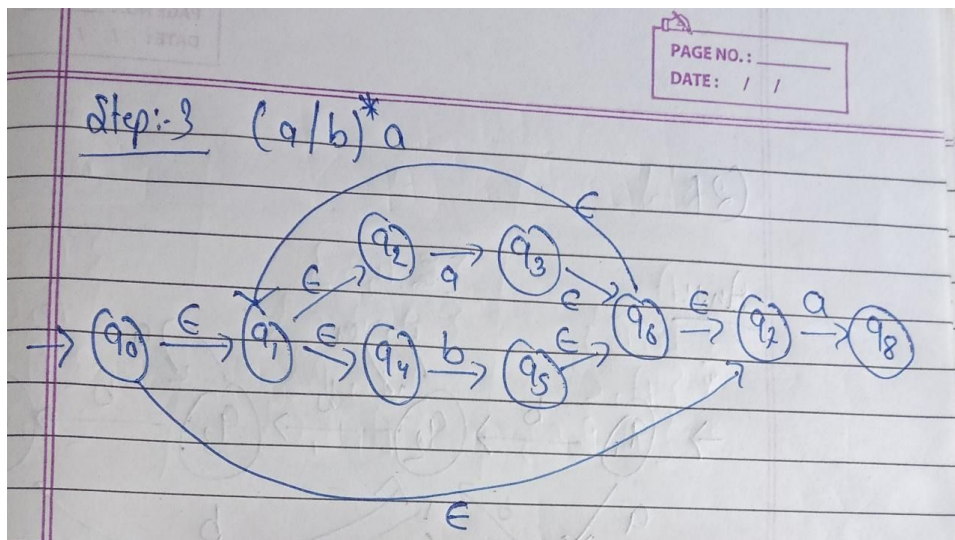 PAGE NO.:
DATE: / /
Step:-3 (a/b)*a
ϵ
q2 a q3
ϵ ϵ
q0 ϵ q1 ϵ q4 b q5 ϵ q6 ϵ q7 a q8
ϵ